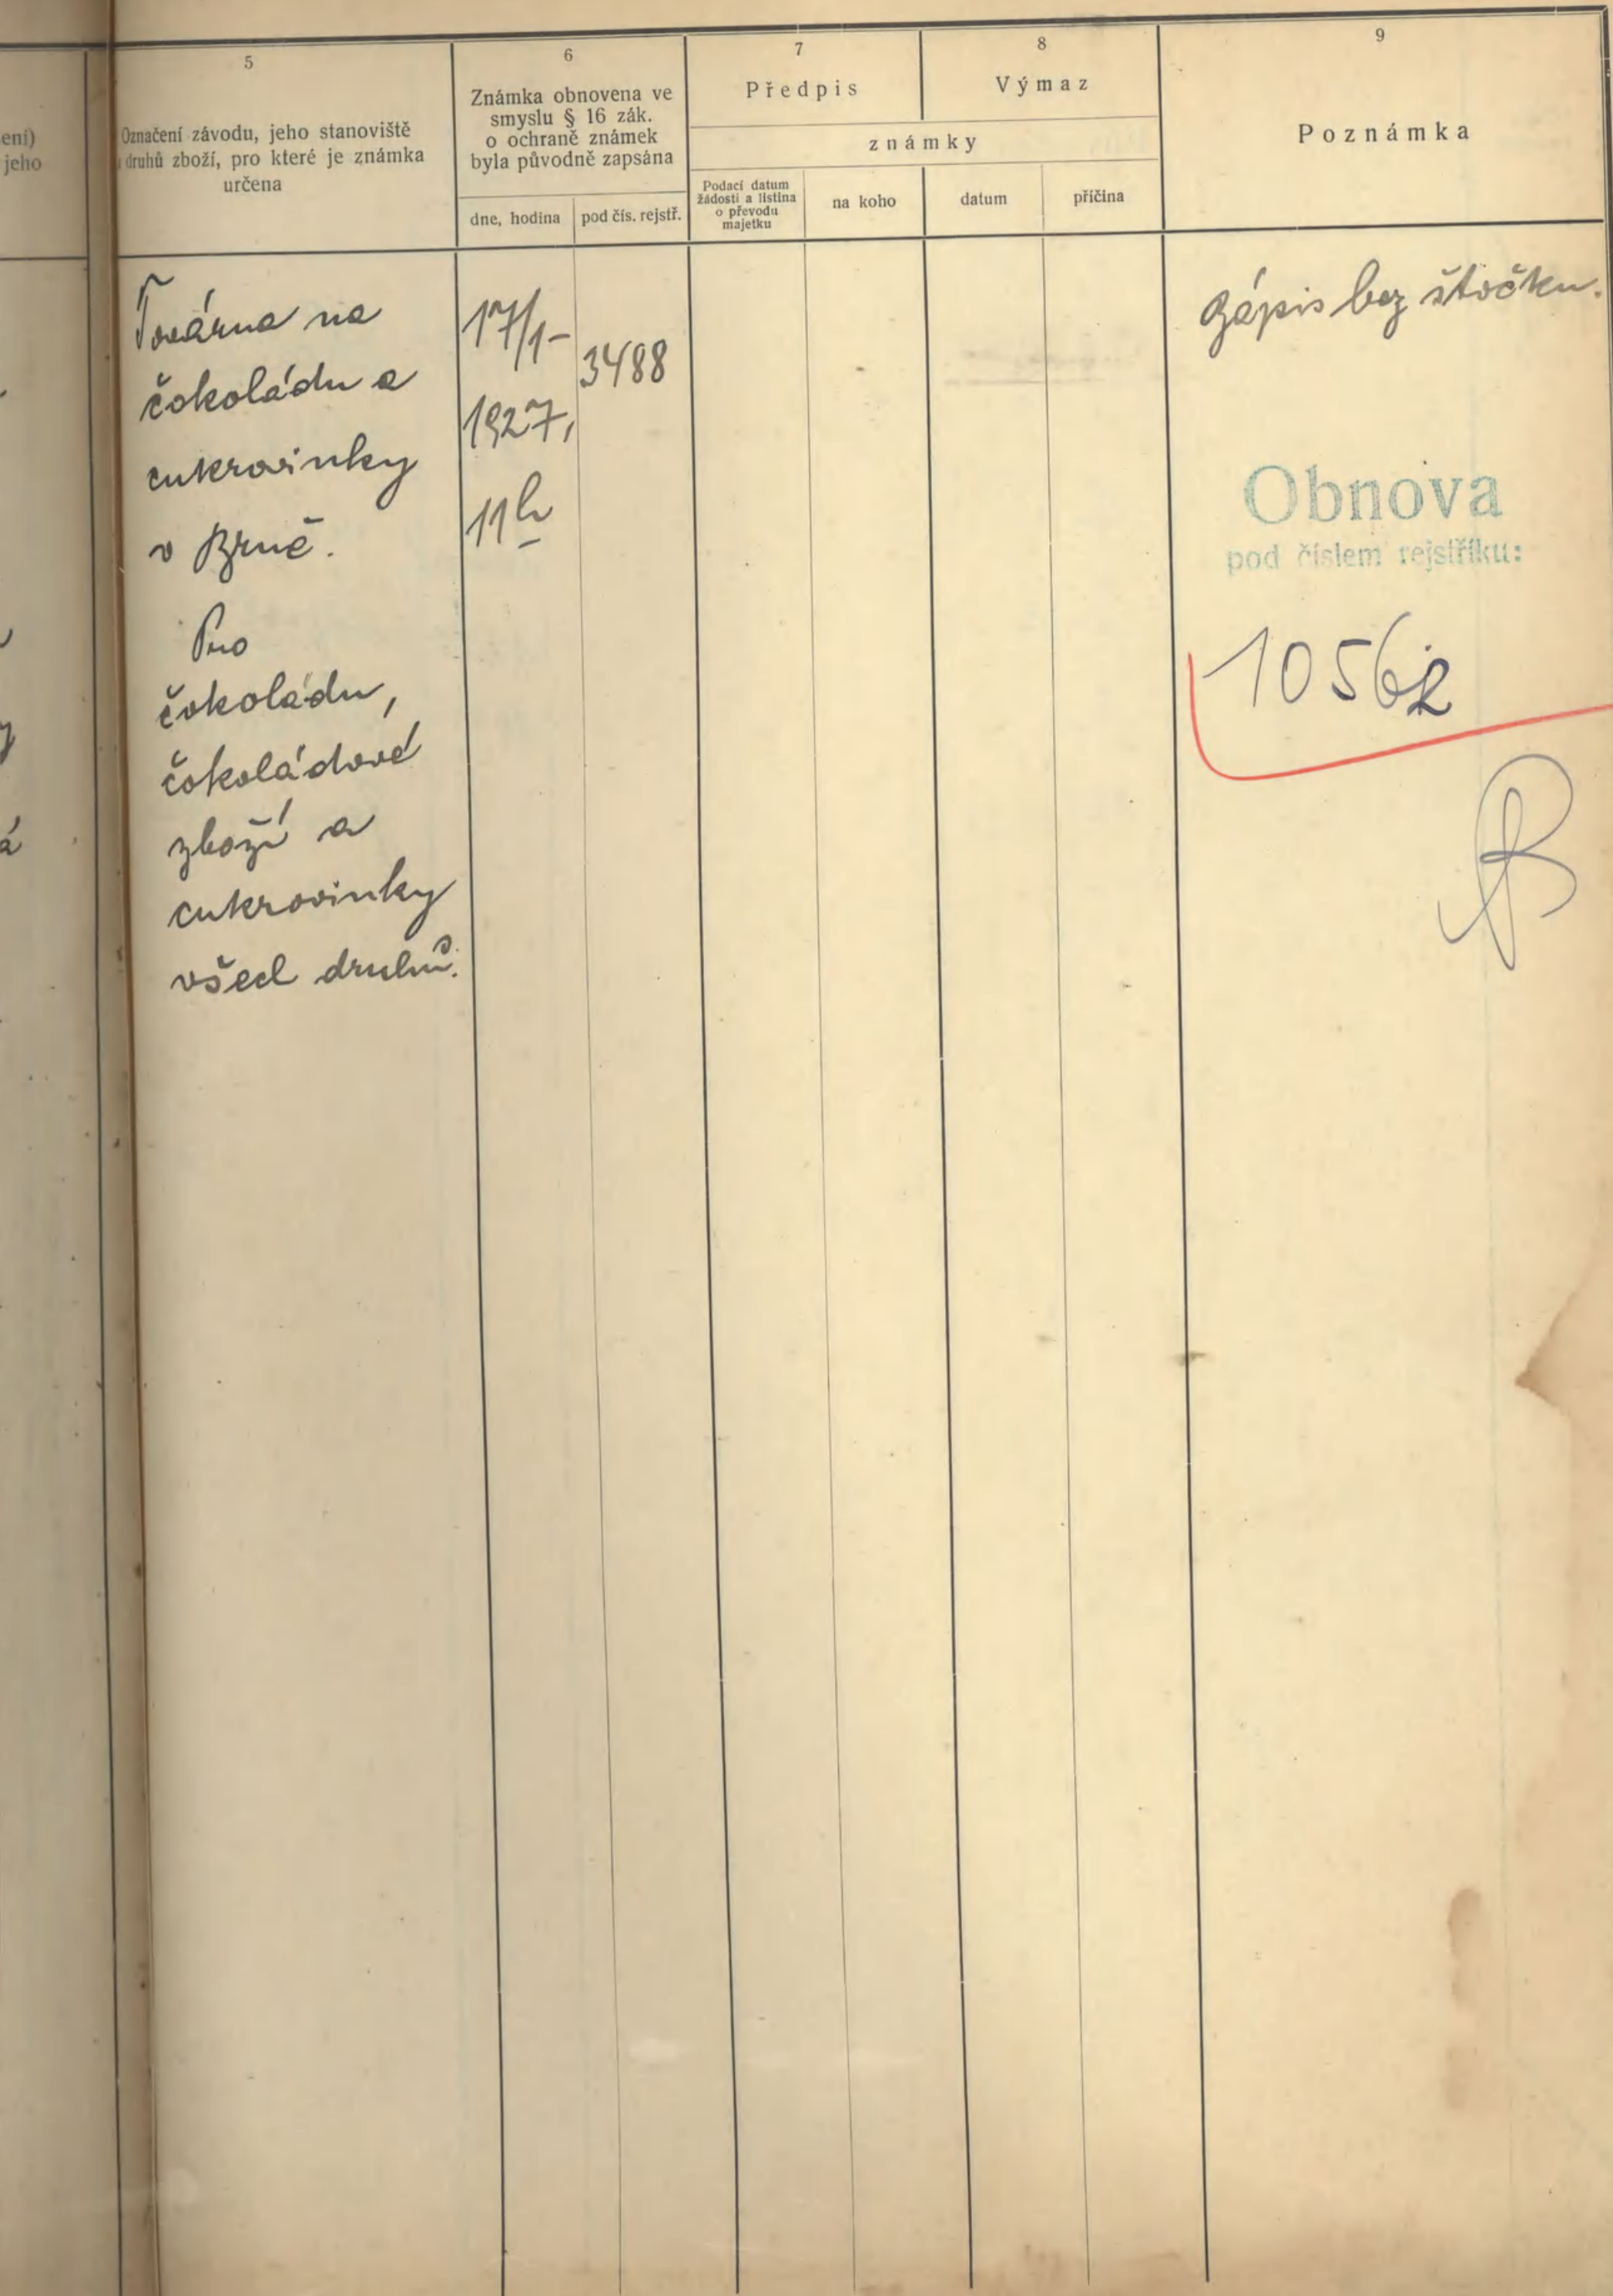 ení)
jeho
5
Označení závodu, jeho stanoviště
druhů zboží, pro které je známka
určena
6
Známka obnovena ve
smyslu § 16 zák.
o ochraně známek
byla původně zapsána
dne, hodina
pod čís. rejstř.
7
Předpis
8
Výmaz
známky
Podací datum
žádosti a listina
o převodu
majetku
na koho
datum
příčina
9
Poznámka
Továrna na
čokoládu a
cukrovinky
v Brně.
Pro
čokoládu,
čokoládové
zboží a
cukrovinky
všech druhů.
17/1-
1927,
11h
3488
Zápis bez štočku.
Obnova
pod číslem rejstříku:
10562